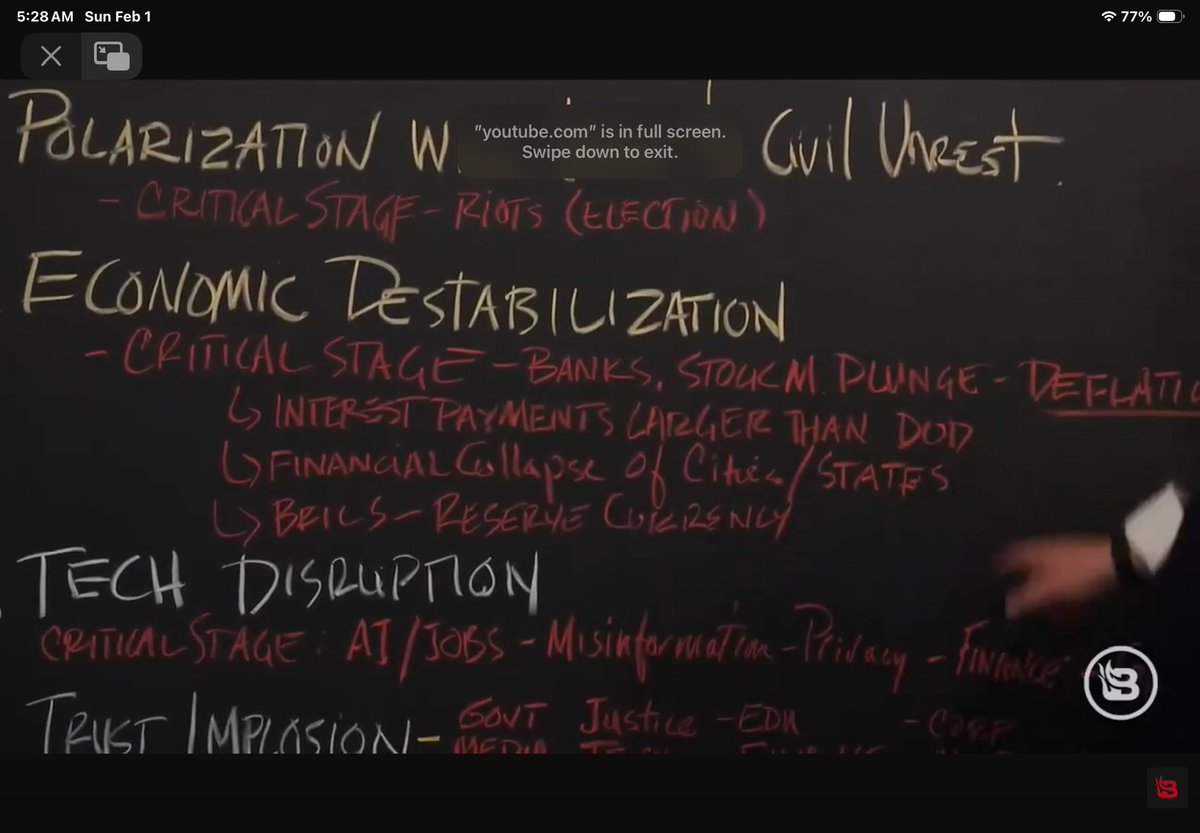 5:28 AM Sun Feb 1
77%
POLARIZATION W Civil Unrest.
"youtube.com" is in full screen.
Swipe down to exit.
- CRITICAL STAGE - RIOTS (ELECTION)
ECONOMIC DESTABILIZATION
- CRITICAL STAGE - BANKS, STOCK M. PLUNGE - DEFLATIO
↳ INTEREST PAYMENTS LARGER THAN DOD
↳ FINANCIAL Collapse of Cities/STATES
↳ BRICS - RESERVE CURRENCY
TECH DISRUPTION
CRITICAL STAGE: AI/JOBS - Misinformation - Privacy - FINANCE
TRUST IMPLOSION - GOVT Justice - EDU - CORP
MEDIA
B
B